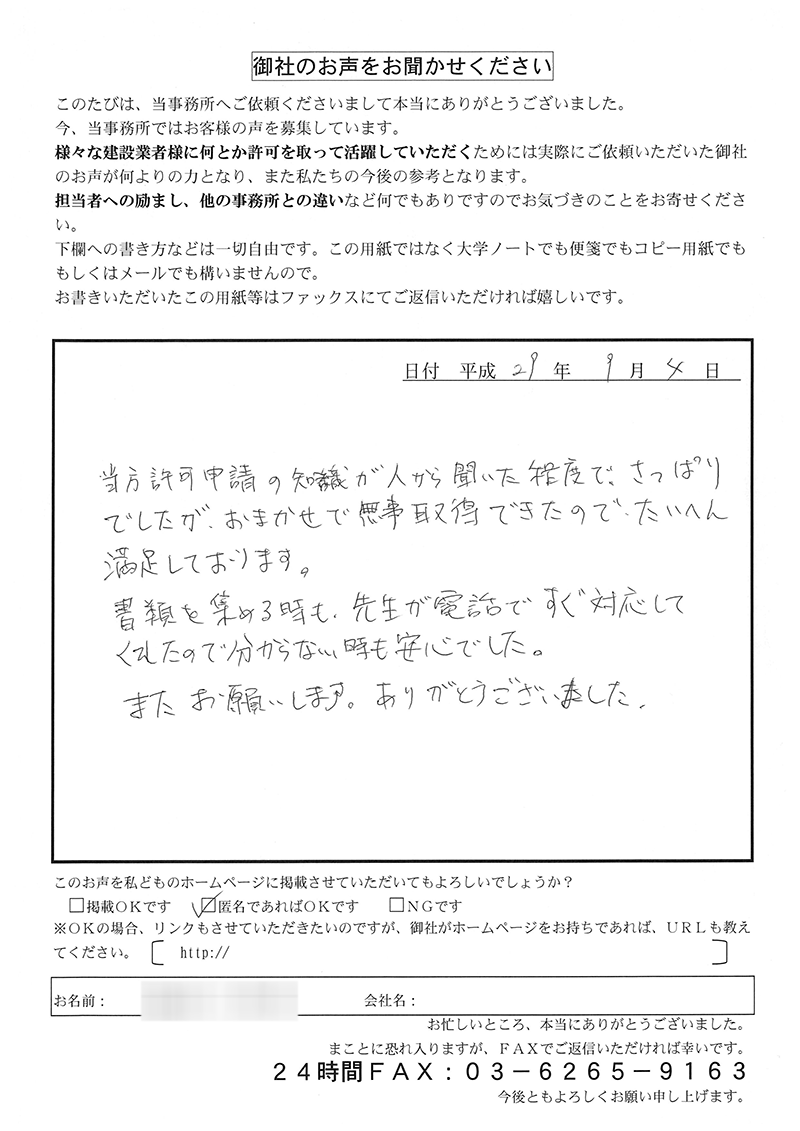 御社のお声をお聞かせください
このたびは、当事務所へご依頼くださいまして本当にありがとうございました。
今、当事務所ではお客様の声を募集しています。
様々な建設業者様に何とか許可を取って活躍していただくためには実際にご依頼いただいた御社
のお声が何よりの力となり、また私たちの今後の参考となります。
担当者への励まし、他の事務所との違いなど何でもありですのでお気づきのことをお寄せくださ
い。
下欄への書き方などは一切自由です。この用紙ではなく大学ノートでも便箋でもコピー用紙でも
もしくはメールでも構いませんので。
お書きいただいたこの用紙等はファックスにてご返信いただければ嬉しいです。
日付 平成 29 年 9 月 4 日
当方許可申請の知識が人から聞いた程度で、さっぱり
でしたが、おまかせで無事取得できたので、たいへん
満足しております。
書類を集める時も、先生が電話ですぐ対応して
くれたので分からない時も安心でした。
またお願いします。ありがとうございました。
このお声を私どものホームページに掲載させていただいてもよろしいでしょうか？
□掲載ＯＫです ☑匿名であればＯＫです □ＮＧです
※ＯＫの場合、リンクもさせていただきたいのですが、御社がホームページをお持ちであれば、ＵＲＬも教え
てください。 〔 http:// 〕
お名前： 会社名：
お忙しいところ、本当にありがとうございました。
まことに恐れ入りますが、ＦＡＸでご返信いただければ幸いです。
２４時間ＦＡＸ：０３－６２６５－９１６３
今後ともよろしくお願い申し上げます。